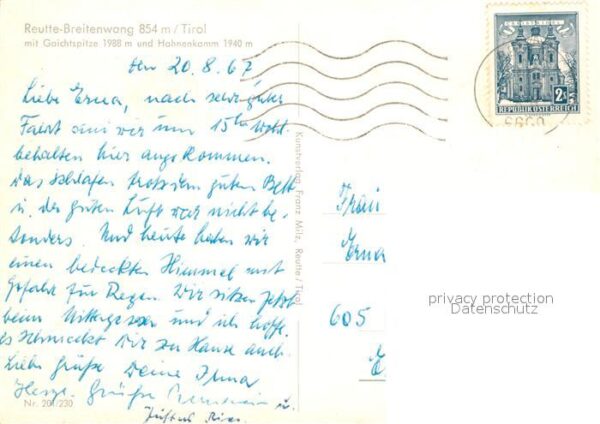 Reutte-Breitenwang 854 m / Tirol
mit Gaichtspitze 1988 m und Hahnenkamm 1940 m
den 20.8.67
Liebe Erna, nach sehr guter
Fahrt sind wir um 15 Uhr wohl
behalten hier angekommen.
Das Schlafen trotz dem guten Bett
u. der guten Luft war nicht be-
sonders. Und heute haben wir
einen bedeckten Himmel mit
Gefahr für Regen. Wir sitzen jetzt
beim Mittagessen und ich hoffe,
es schmeckt Dir zu Hause auch.
Liebe Grüße Deine Irma
Herzl. Grüße u.
Nr. 201/230
Kunstverlag Franz Milz, Reutte / Tirol
CHRISTKINDL
2S
REPUBLIK ÖSTERREICH
6600
Frau
Erna
605
privacy protection
Datenschutz